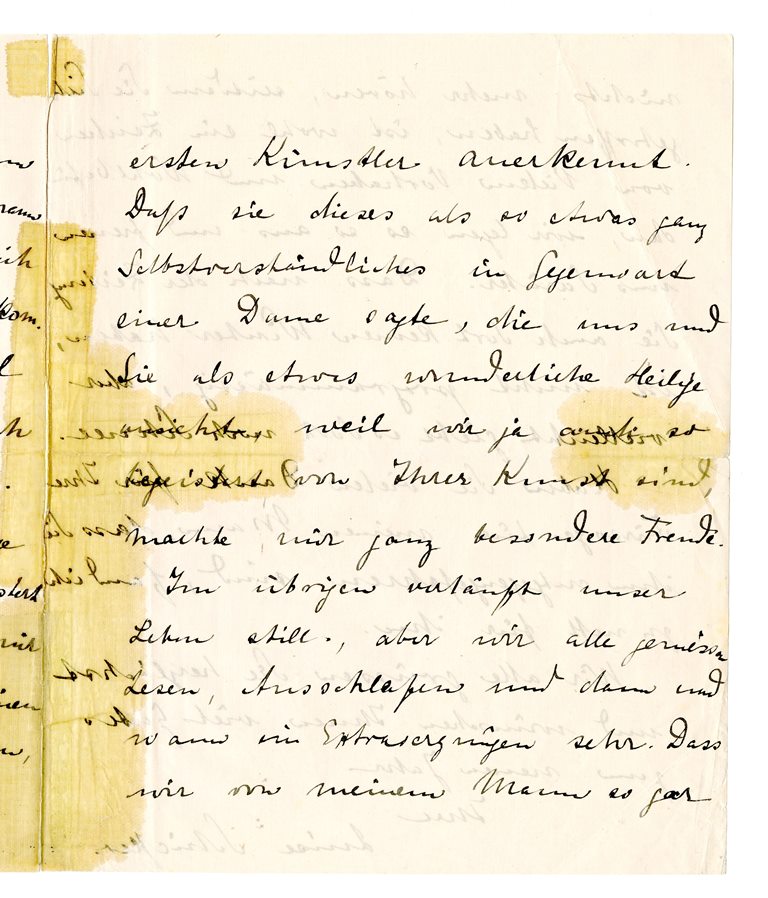 ersten Künstler anerkennt.
Daß sie dieses als so etwas ganz
Selbstverständliches in Gegenwart
einer Dame sagte, die uns und
Sie als etwas wunderliche Heilige
ansieht, weil wir ja auch so
begeistert von Ihrer Kunst sind,
machte mir ganz besondere Freude.
Im übrigen verläuft unser
Leben still., aber wir alle geniessen
Lesen, Ausschlafen und dann und
wann ein Extravergnügen sehr. Dass
wir von meinem Mann so gar